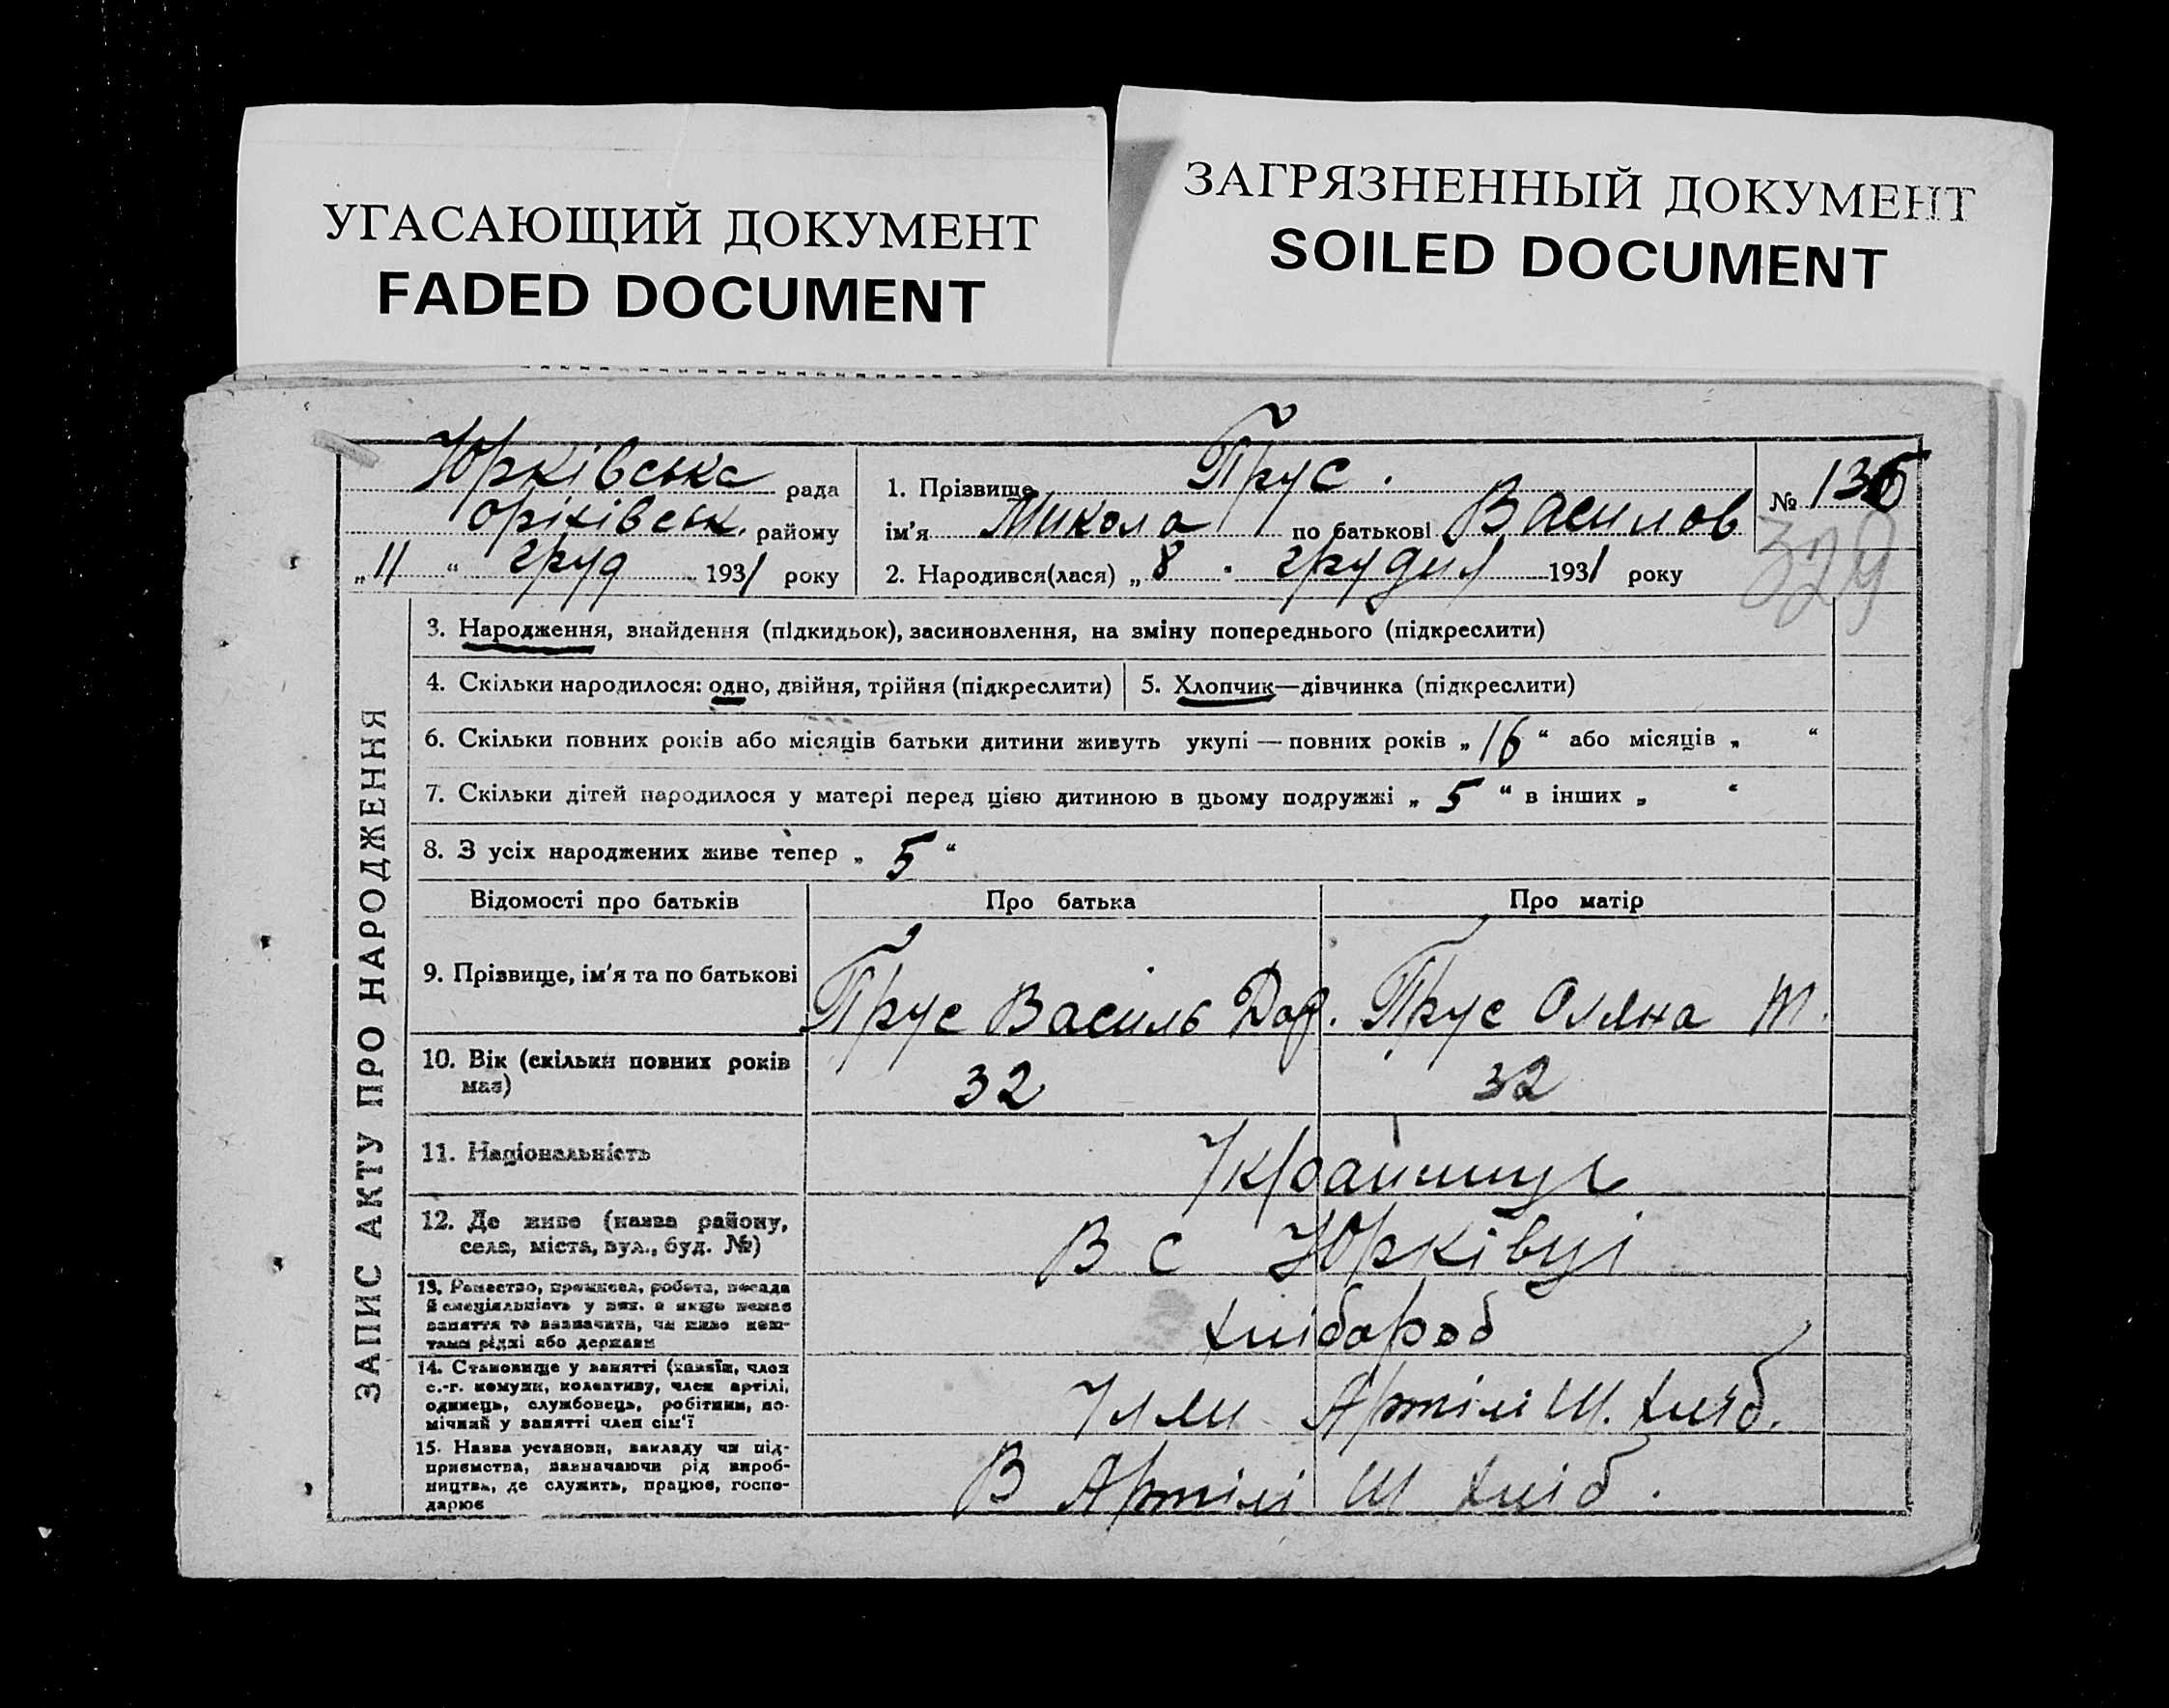 УГАСАЮЩИЙ ДОКУМЕНТ
FADED DOCUMENT
ЗАГРЯЗНЕННЫЙ ДОКУМЕНТ
SOILED DOCUMENT
Юрківська рада
Оріхівськ. району
„11“ груд 1931 року
1. Прізвище Прус.
ім'я Микола по батькові Василов
2. Народився(лася) „8. грудня 1931 року
№ 136
329
ЗАПИС АКТУ ПРО НАРОДЖЕННЯ
3. Народження, знайдення (підкидьок), засиновлення, на зміну попереднього (підкреслити)
4. Скільки народилося: одно, двійня, трійня (підкреслити)
5. Хлопчик—дівчинка (підкреслити)
6. Скільки повних років або місяців батьки дитини живуть укупі — повних років „16“ або місяців „ “
7. Скільки дітей народилося у матері перед цією дитиною в цьому подружжі „5“ в інших „ “
8. З усіх народжених живе тепер „5“
Відомості про батьків Про батька Про матір
9. Прізвище, ім'я та по батькові Прус Василь Дор. Прус Оляна М.
10. Вік (скільки повних років 32 32
має)
11. Національність Українці
12. Де живе (назва району, В с Юрківці
села, міста, вул., буд. №)
13. Ремество, промисел, робота, посада
й спеціяльність у них. а якщо немає
заняття то зазначити, чи живе кош-
тами рідні або держави
Хлібороб
14. Становище у занятті (хазяїн, член
с.-г. комуни, колективу, член артілі,
одинець, службовець, робітник, по-
мічний у занятті член сім'ї
Член Артілі Ш. Хліб.
15. Назва установи, закладу чи під-
приємства, зазначаючи рід вироб-
ництва, де служить, працює, госпо-
дарює
В Артілі Ш Хліб.